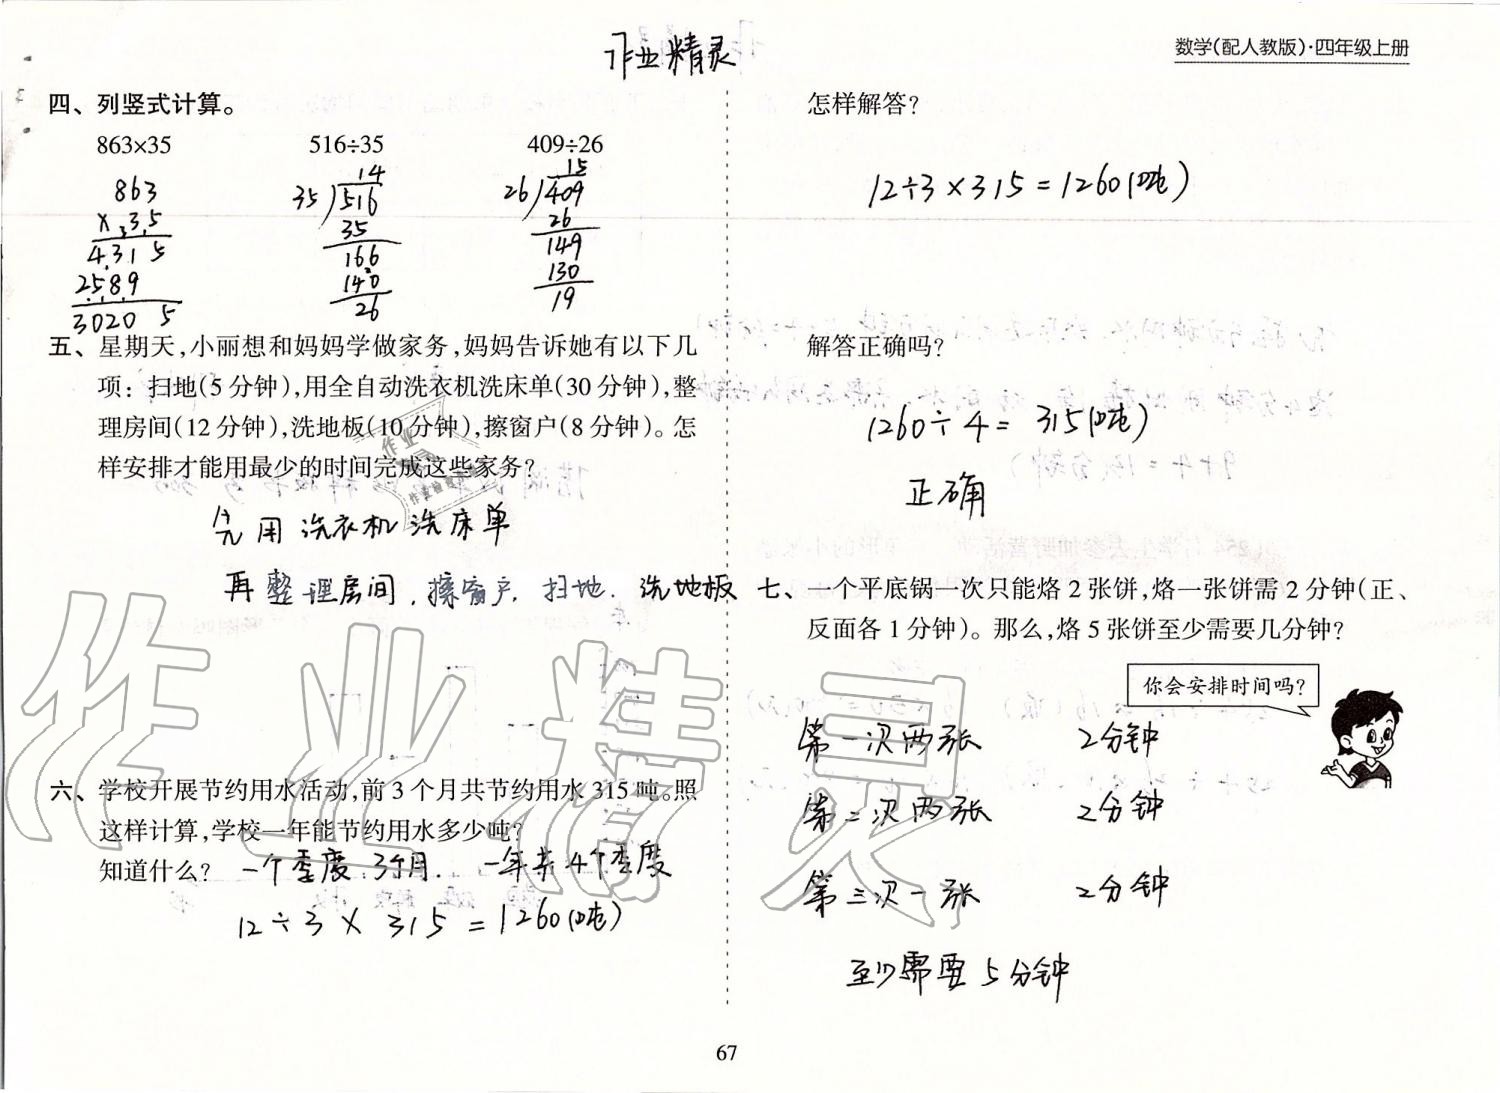 作业精灵
数学(配人教版)·四年级上册
四、列竖式计算。
863×35 516÷35 409÷26
863
×35
4315
2589
30205
14
35 516
35
166
140
26
15
26 409
26
149
130
19
五、星期天,小丽想和妈妈学做家务,妈妈告诉她有以下几
项:扫地(5分钟),用全自动洗衣机洗床单(30分钟),整
理房间(12分钟),洗地板(10分钟),擦窗户(8分钟)。怎
样安排才能用最少的时间完成这些家务?
先用洗衣机洗床单
再整理房间,擦窗户,扫地.洗地板
六、学校开展节约用水活动,前3个月共节约用水315吨。照
这样计算,学校一年能节约用水多少吨?
知道什么? 一个季度3个月. 一年共4个季度
12÷3×315=1260(吨)
怎样解答?
12÷3×315=1260(吨)
解答正确吗?
1260÷4=315(吨)
正确
七、一个平底锅一次只能烙2张饼,烙一张饼需2分钟(正、
反面各1分钟)。那么,烙5张饼至少需要几分钟?
你会安排时间吗?
第一次两张 2分钟
第二次两张 2分钟
第三次一张 2分钟
至少需要5分钟
作业精灵
67